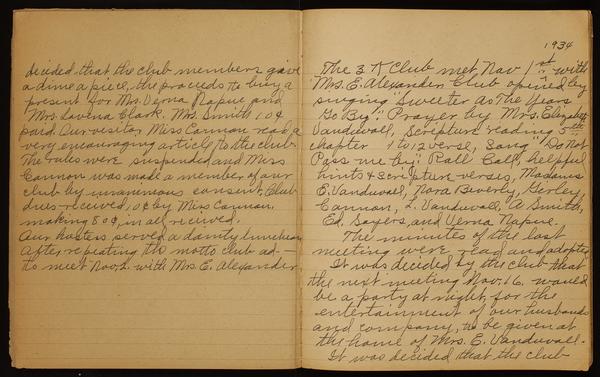 decided that the club members give
a dime a piece, the proceeds to buy a
present for Mrs. Verna Napue and
Mrs. Lavina Clark. Mrs. Smith 10¢
paid. Our visitor, Miss Cannon read a
very encouraging article to the club.
The rules were suspended and Miss
Cannon was made a member of our
club by unanimous consent. Club
dues received, 10¢ by Miss Cannon,
making 80¢, in all recived.
Our hostess served a dainty luncheon
After repeating the motto club ad-
to meet Nov. 2. with Mrs E. Alexander
1934
The 3 K Club met Nov 1st with
Mrs. E. Alexander Club opened by
singing "Sweeter As The Years
Go By;" Prayer by Mrs. Elizabeth
Vanduvall, Scripture reading 5th
chapter 1 to 12 verse, Song "Do Not
Pass me by" Rall Call, helpful
hints & scripture verses, Madams
E. Vanduvall, Nora Beverly, Gerley,
Cannon, L. Vanduvall, A. Smith,
Ed. Sayers, and Verna Napue.
The minutes of the last
meeting were read and adopted
It was decided by the club that
the next meeting Nov. 16. would
be a party at night, for the
entertainment of our husbands
and company, to be given at
the home of Mrs. E. Vanduvall.
It was decided that the club